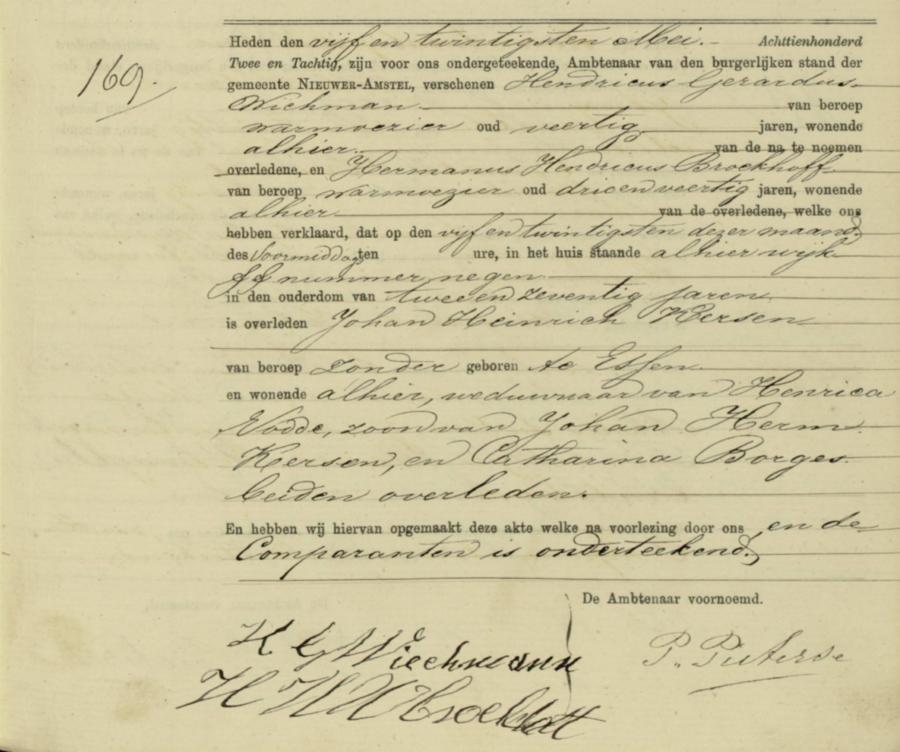 169.
Heden den vijf en twintigsten Mei. Achttienhonderd
Twee en Tachtig, zijn voor ons ondergeteekende, Ambtenaar van den burgerlijken stand der
gemeente NIEUWER-AMSTEL, verschenen Hendricus Gerardus
Wichman van beroep
warmoezier oud veertig jaren, wonende
alhier van de na te noemen
overledene, en Hermanus Hendricus Brockhoff
van beroep warmoezier oud drieenveertig jaren, wonende
alhier van de overledene, welke ons
hebben verklaard, dat op den vijf en twintigsten dezer maand
des Voormiddags ten ure, in het huis staande alhier wijk
ff nummer negen
in den ouderdom van twee en zeventig jaren
is overleden Johan Heinrich Kersen
van beroep zonder geboren te Essen
en wonende alhier, weduwnaar van Henrica
Vodde, zoon van Johan Herm
Kersen, en Catharina Borges
beiden overleden.
En hebben wij hiervan opgemaakt deze akte welke na voorlezing door ons en de
Comparanten is onderteekend.
De Ambtenaar voornoemd.
H G Wiechmann
P. Pieterse
H H